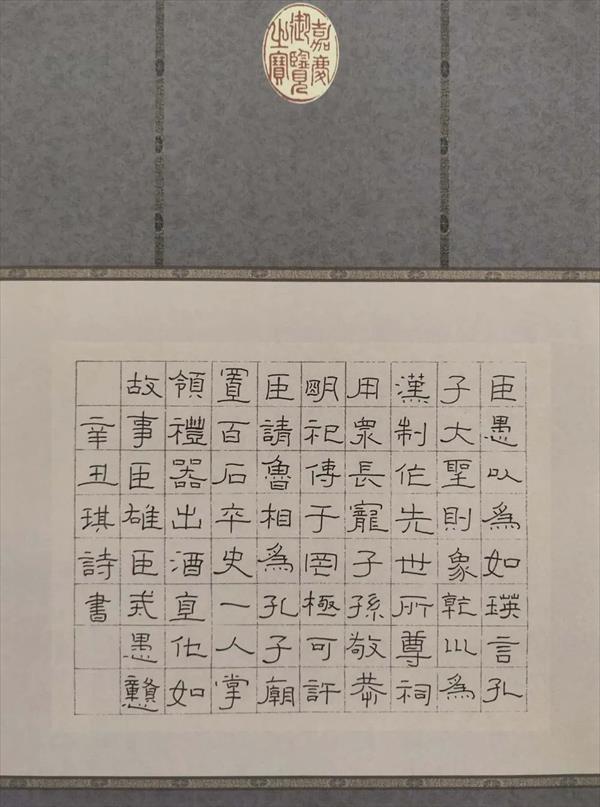 嘉慶
御覽
之寶
臣愚以為如瑛言孔
子大聖則象乾川為
漢制作先世所尊祠
用眾長寵子孫敬恭
明祀傳于罔極可許
臣請魯相為孔子廟
置百石卒史一人掌
領禮器出酒直他如
故事臣雄臣戒愚戇
辛丑琪詩書